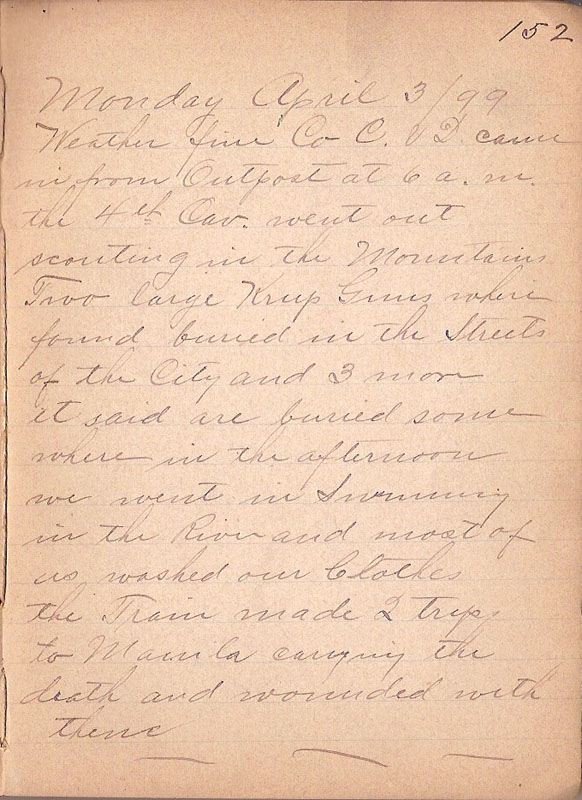 152
Monday April 3/99
Weather fine Co C. & D. came
in from Outpost at 6 a. m.
the 4th Cav. went out
scouting in the Mountains
Two large Krup Guns where
found buried in the Streets
of the City and 3 more
it said are buried some
where in the afternoon
we went in Swimming
in the River and most of
us washed our Clothes
the Train made 2 trips
to Manila carrying the
death and wounded with
them